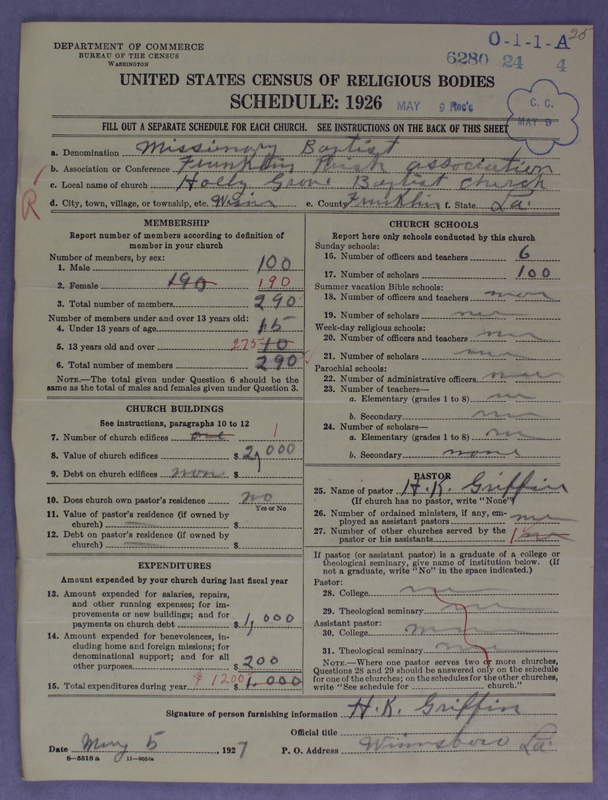 25
O-1-1-A
DEPARTMENT OF COMMERCE
BUREAU OF THE CENSUS
WASHINGTON
6280 24 4
UNITED STATES CENSUS OF RELIGIOUS BODIES
SCHEDULE: 1926
MAY 9 Rec'd
C. C.
MAY 9
FILL OUT A SEPARATE SCHEDULE FOR EACH CHURCH. SEE INSTRUCTIONS ON THE BACK OF THIS SHEET
a. Denomination Missionary Baptist
b. Association or Conference Franklin association
c. Local name of church Holly Grove Baptist church
d. City, town, village, or township, etc. e. County Franklin f. State La.
R
MEMBERSHIP
Report number of members according to definition of member in your church
Number of members, by sex:
1. Male 100
2. Female 190 190
3. Total number of members 290
Number of members under and over 13 years old:
4. Under 13 years of age 15
5. 13 years old and over 275 10
6. Total number of members 290
NOTE.—The total given under Question 6 should be the same as the total of males and females given under Question 3.
CHURCH BUILDINGS
See instructions, paragraphs 10 to 12
7. Number of church edifices one 1
8. Value of church edifices $ 2,000
9. Debt on church edifices none $
10. Does church own pastor's residence no
Yes or No
11. Value of pastor's residence (if owned by church) $
12. Debt on pastor's residence (if owned by church) $
EXPENDITURES
Amount expended by your church during last fiscal year
13. Amount expended for salaries, repairs, and other running expenses; for improvements or new buildings; and for payments on church debt $ 1,000
14. Amount expended for benevolences, including home and foreign missions; for denominational support; and for all other purposes $ 200
15. Total expenditures during year $ 1200 $ 1,000
CHURCH SCHOOLS
Report here only schools conducted by this church
Sunday schools:
16. Number of officers and teachers 6
17. Number of scholars 100
Summer vacation Bible schools:
18. Number of officers and teachers none
19. Number of scholars
Week-day religious schools:
20. Number of officers and teachers
21. Number of scholars
Parochial schools:
22. Number of administrative officers
23. Number of teachers—
a. Elementary (grades 1 to 8)
b. Secondary
24. Number of scholars—
a. Elementary (grades 1 to 8)
b. Secondary none
PASTOR
25. Name of pastor H. K. Griffin
(If church has no pastor, write "None")
26. Number of ordained ministers, if any, employed as assistant pastors
27. Number of other churches served by the pastor or his assistants 1
If pastor (or assistant pastor) is a graduate of a college or theological seminary, give name of institution below. (If not a graduate, write "No" in the space indicated.)
Pastor:
28. College
29. Theological seminary
Assistant pastor:
30. College
31. Theological seminary
NOTE.—Where one pastor serves two or more churches, Questions 28 and 29 should be answered only on the schedule for one of the churches; on the schedules for the other churches, write "See schedule for church."
Signature of person furnishing information H. K. Griffin
Official title
Date May 5, 1927 P. O. Address Winnsboro La.
8—5518 a 11—9054a